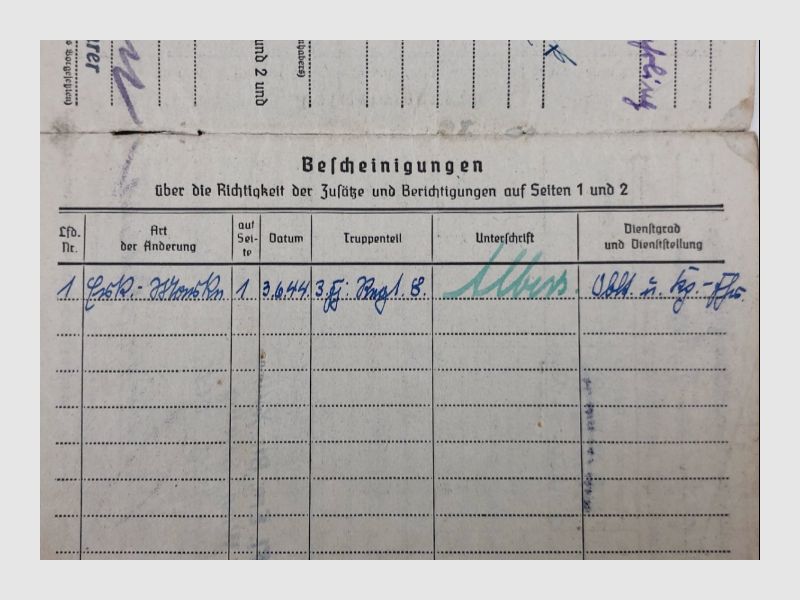 rer
und 2 und
Bescheinigungen
über die Richtigkeit der Zusätze und Berichtigungen auf Seiten 1 und 2
Lfd. Nr.
Art der Änderung
auf Sei- te
Datum
Truppenteil
Unterschrift
Dienstgrad und Dienststellung
1 Erk.-Marke 1 3.6.44 3. Fj. Regt. 8. Albers. Oblt. u. Kp.-Fhr.